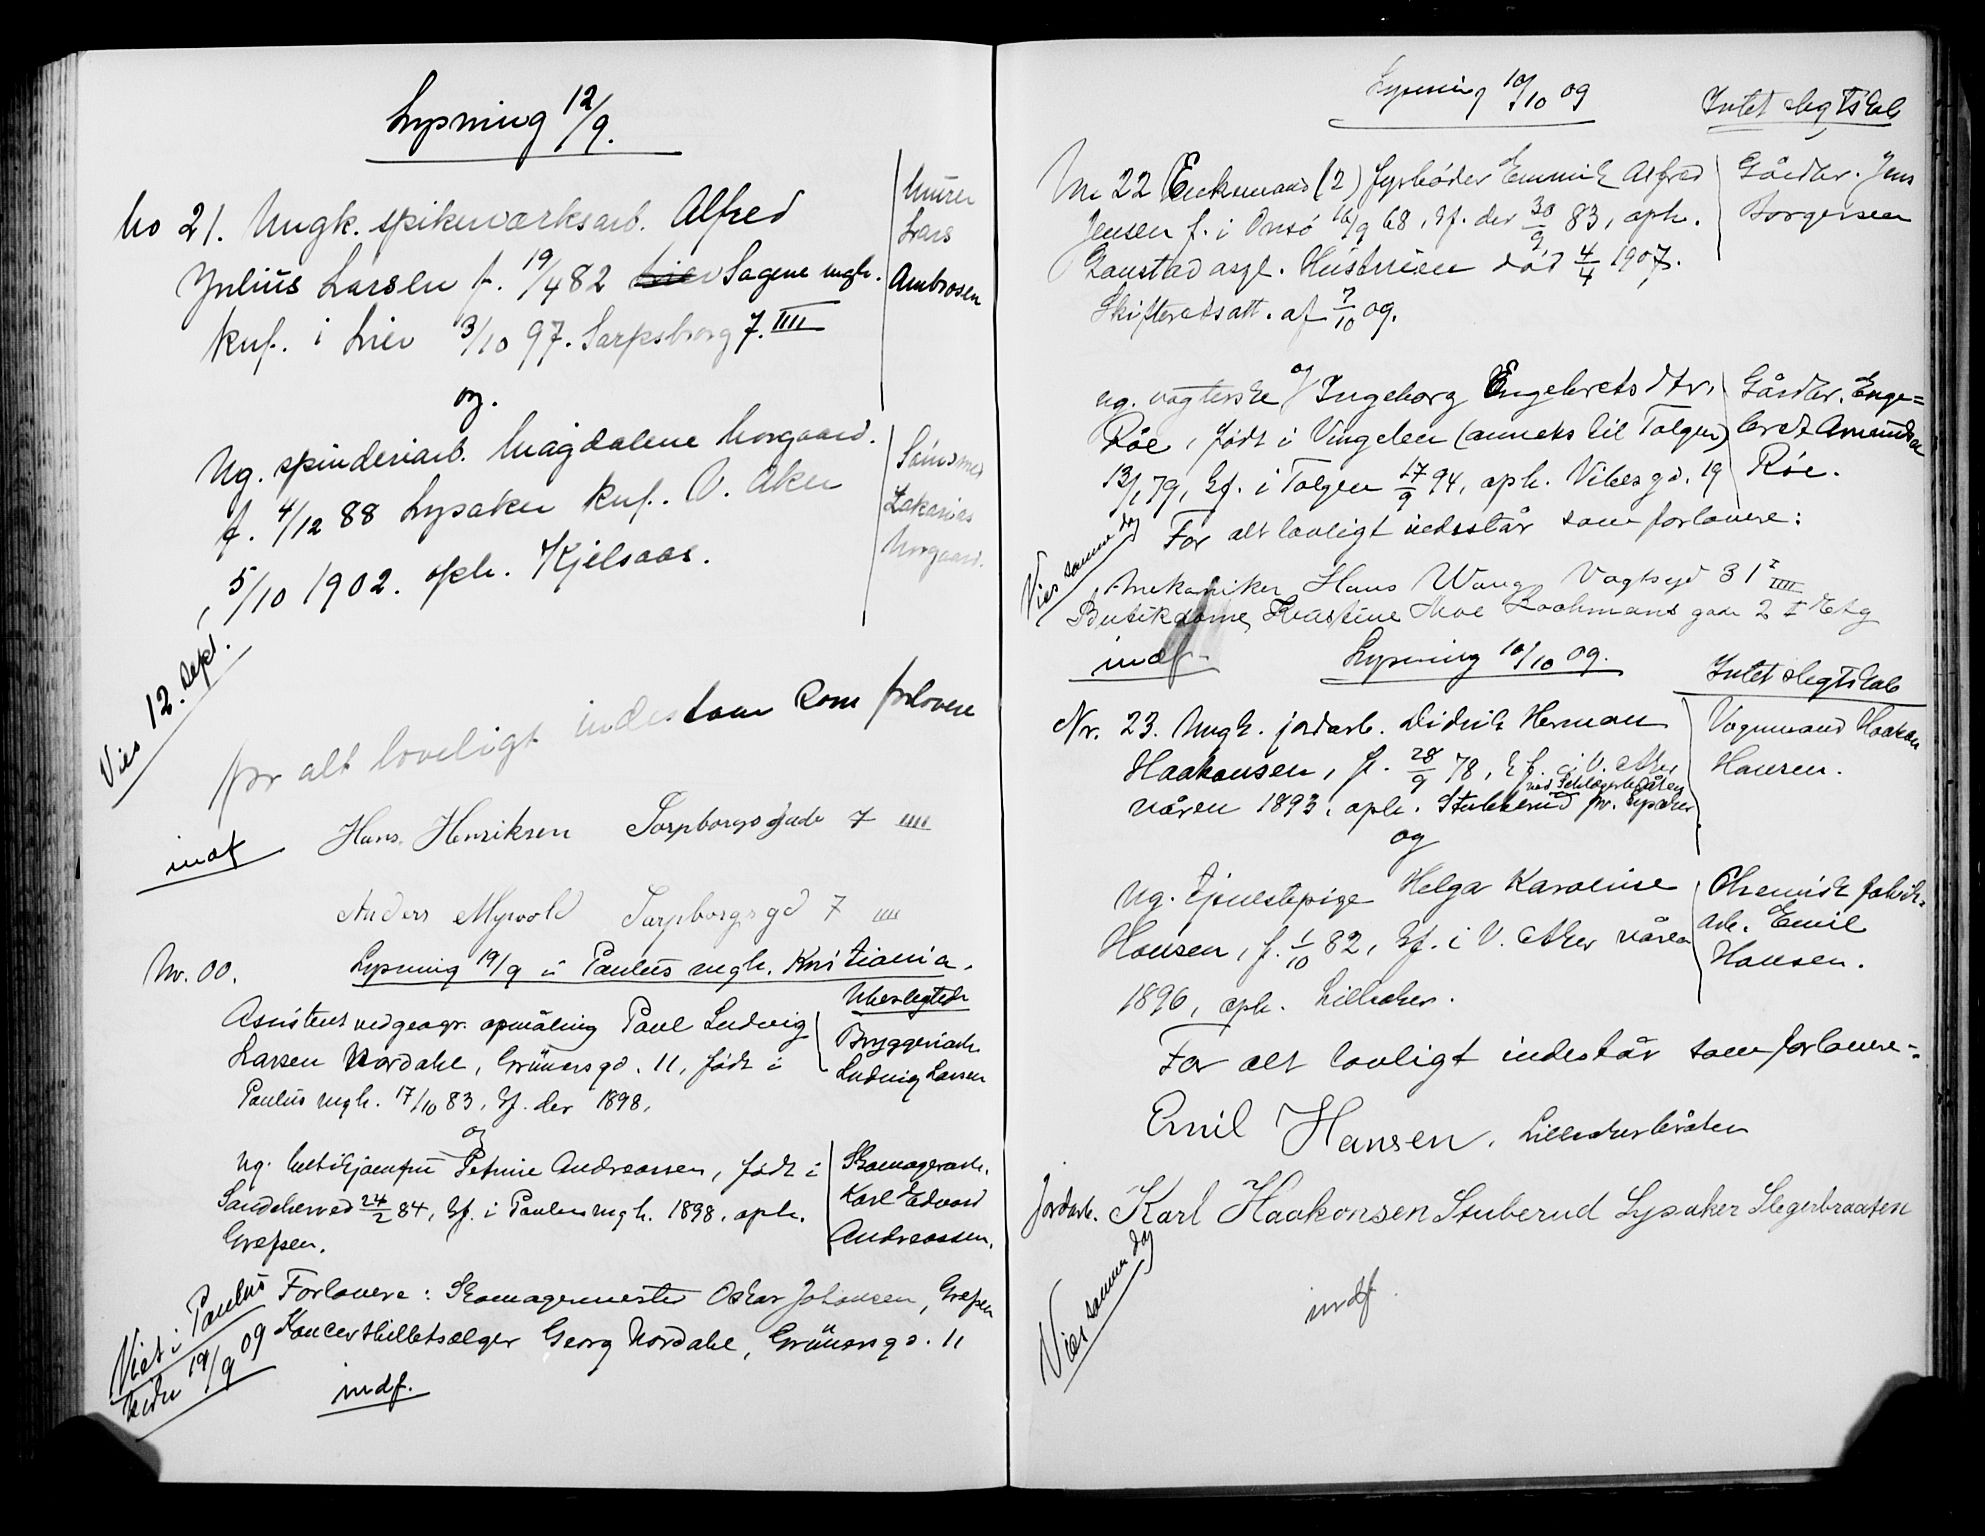 Lysning 12/9.
No 21. Ungk. spikerværksarb. Alfred
Julius Larsen f. 19/4 82 Lier Sagene mgh.
Knf. i Lier 3/10 97. Sarpsborg 7. IIII
Murer
Lars
Ambrosen
og.
Ug. spinderiarb. Magdalene Norgaard.
f. 4/12 88 Lysaker Knf. V. Aker
5/10 1902. oph. Kjelsaas.
Zakarias
Norgaard.
Viet 12. Sept.
for alt loveligt indestaar som forlovere
Hans Henriksen Sarpborgsgade 7 IIII
indf
Anders Myrvold Sarpborgsgd 7 IIII
Nr. 00. Lysning 19/9 i Paulus mgh. Kristiania.
Ubeslegtede
Assistent ved geogr. opmåling Paul Ludvig
Larsen Nordahl, Grünersgd. 11, født i
Paulus mgh. 17/10 83, kf. der 1898.
Bryggeriarb.
Ludvig Larsen
og
Ug. butikjomfru Petrine Andreassen, født i
Sandeherred 24/2 84, kf. i Paulus mgh. 1898, oph.
Grefsen.
Skomagerarb.
Karl Edvard
Andreassen.
Forlovere: Skomagermester Oskar Johansen, Grefsen
Koncertbilletsælger Georg Nordahl, Grünersgd. 11
Viet i Paulus
kirke 19/9 09
indf.
Lysning 10/10 09
Intet slegtskab
Nr 22 Enkemand (2) fyrbøder Emmik Alfred
Jensen f. i Onsö 16/9 68, kf. der 30/9 83, oph.
Gaustad asyl. Hustruen död 4/4 1907.
Skifteretsatt. af 7/10 09.
Gårdbr. Jens
Borgersen
og
ug. vogterske Ingeborg Engebretsdtr.
Röe, født i Vingelen (anneks til Tolgen)
13/1 79, kf. i Tolgen 17/9 94, oph. Vibesgd. 19
Gårdbr. Enge=
bret Amundsen
Röe.
For alt lovligt indestår som forlovere:
Viet samme dag
Mekaniker Hans Wang Vogtsgd 31 IIII
Butikdame Kristine Moe Rathmans gade 2 I Etg
indf.
Lysning 10/10 09.
Intet slegtskab
Nr. 23. Ungk. jordarb. Didrik Herman
Haakonsen, f. 28/9 78, kf. i V. Aker
våren 1893, oph. Stubberud pr. Lysaker
Vognmand Haakon
Hansen.
og
Ug. tjenestepige Helga Karoline
Hansen, f. 1/10 82, kf. i V. Aker våren
1896, oph. Lilleaker.
Chemisk fabrik-
arb. Emil
Hansen.
For alt lovligt indestår som forlovere:
Emil Hansen. Lilleakerbråten
Jordarb. Karl Haakonsen Stuberud Lysaker Slegerbraaten
Viet samme dag
indf